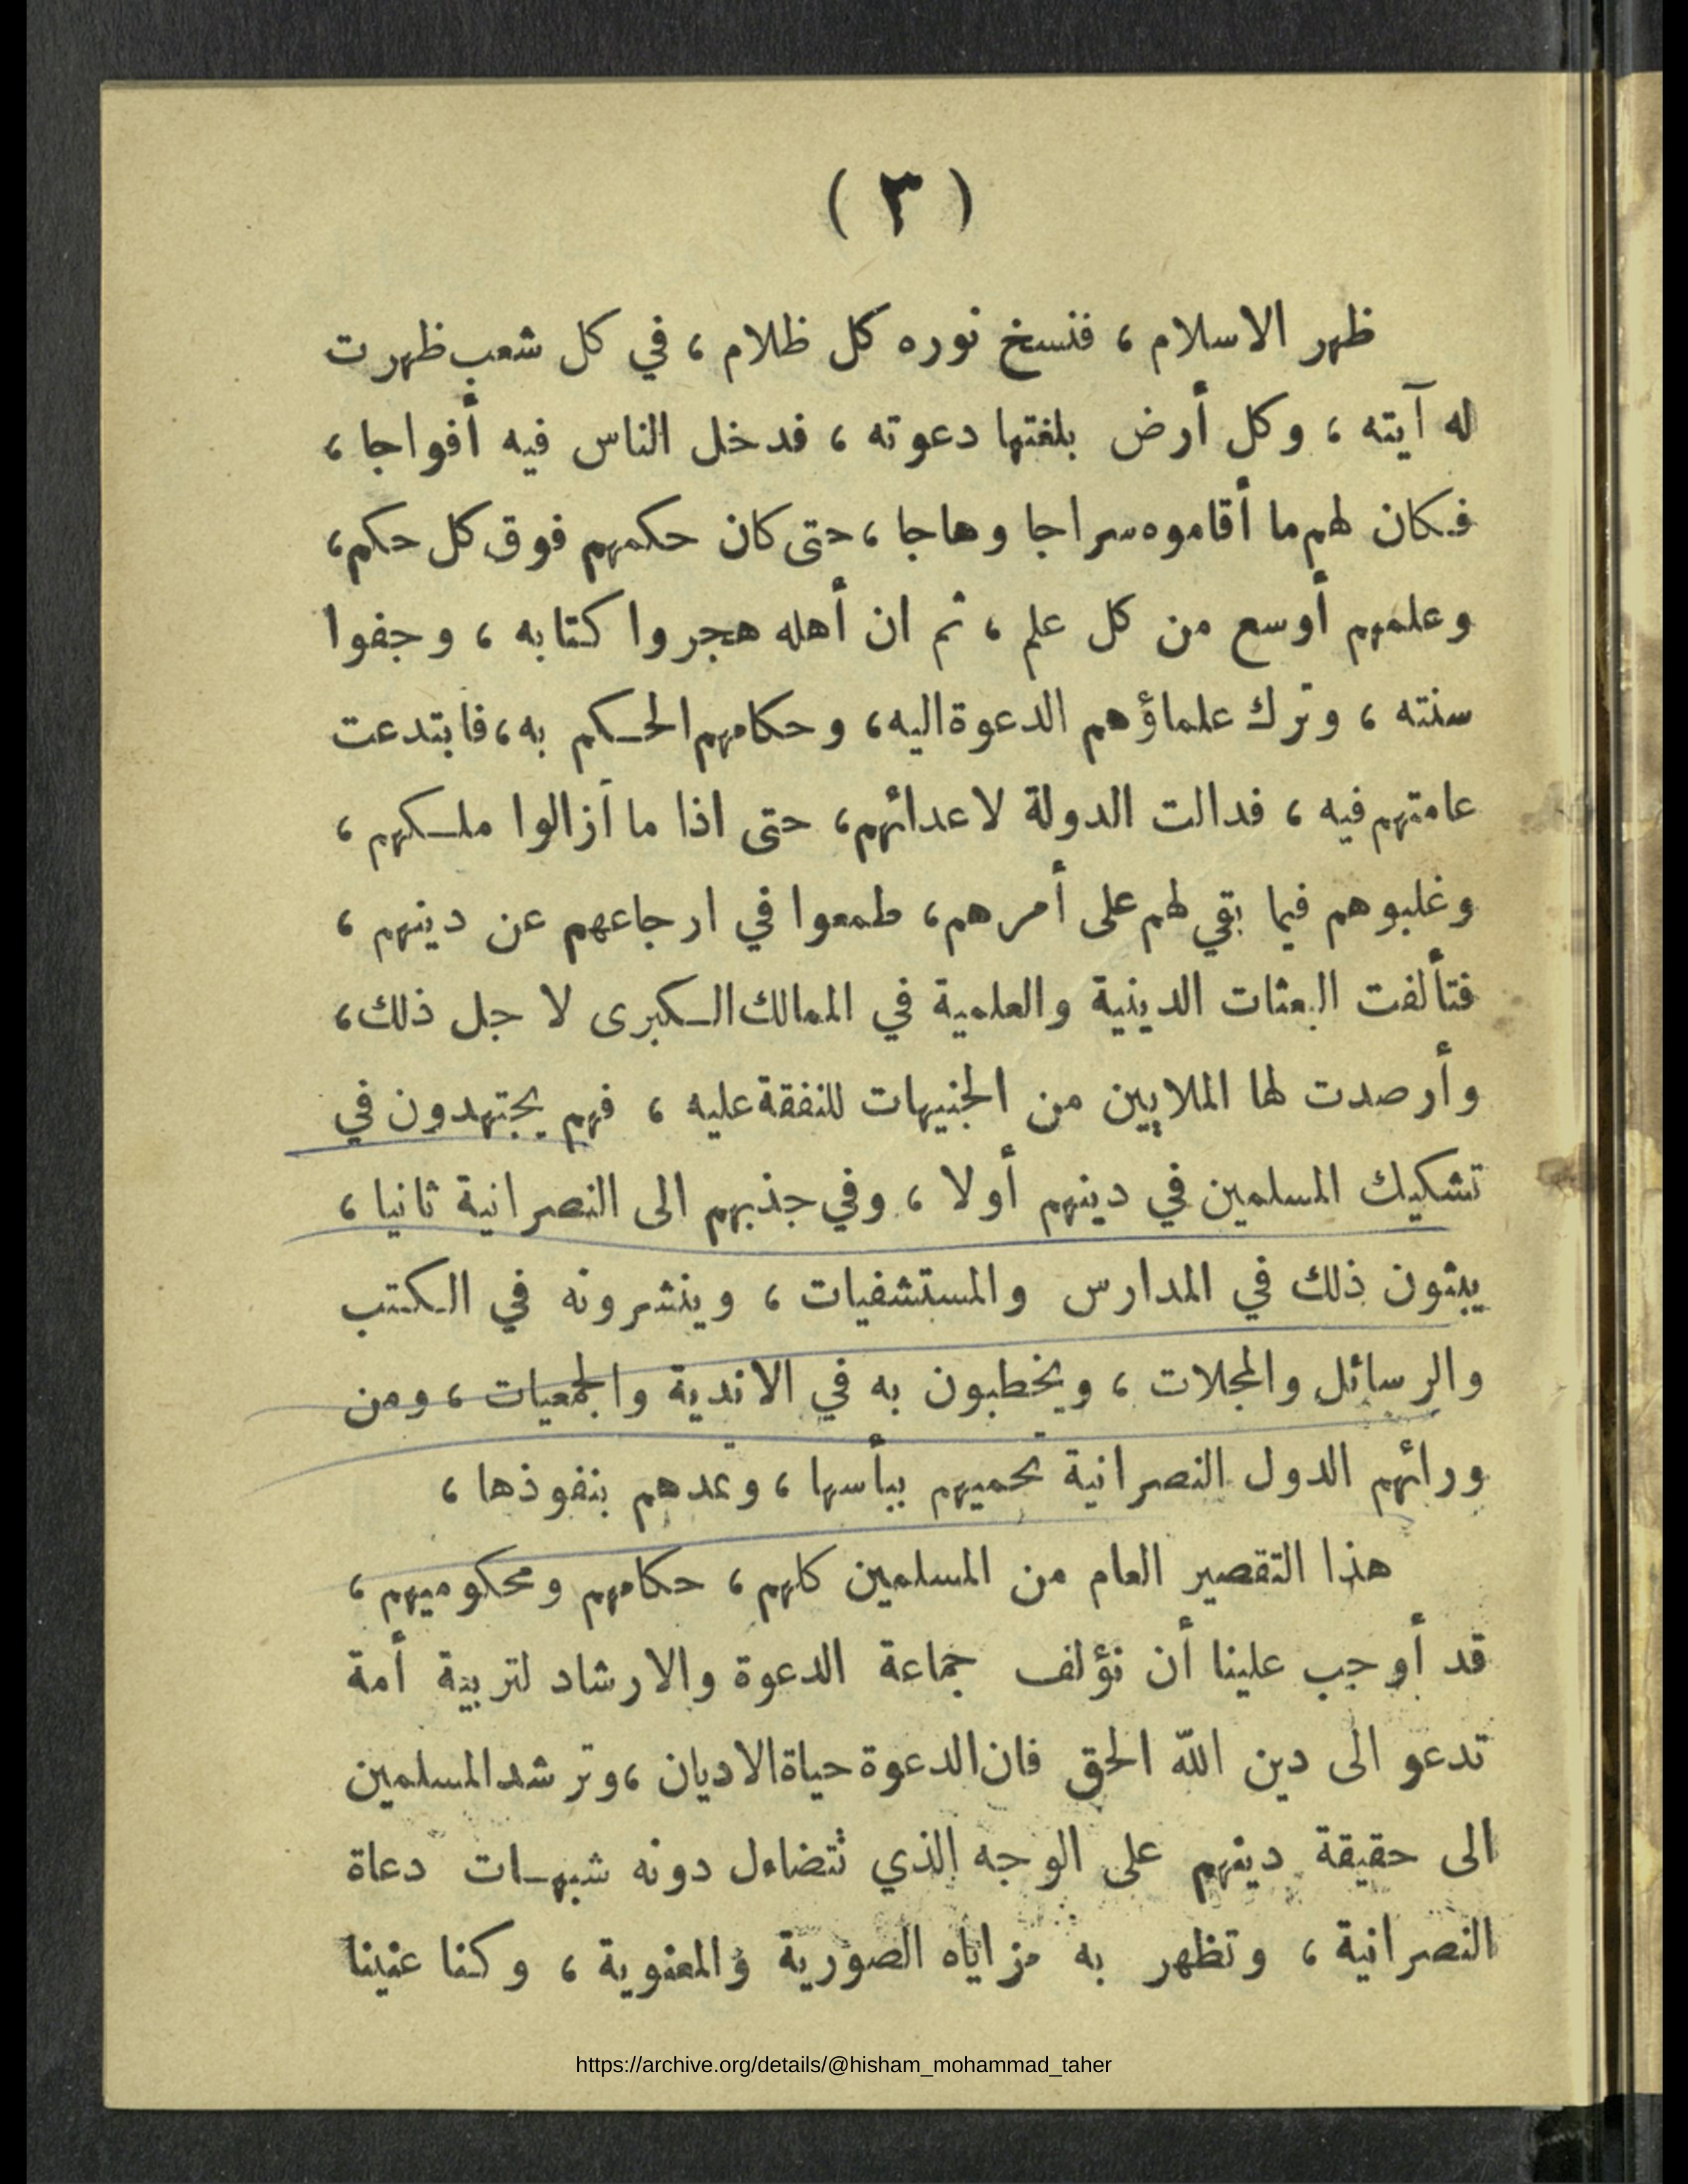 ( ٣ )
ظهر الاسلام ، فنسخ نوره كل ظلام ، في كل شعب ظهرت
له آيته ، وكل أرض بلغتها دعوته ، فدخل الناس فيه أفواجا ،
فكان لهم ما أقاموه سراجا وهاجا ، حتى كان حكمهم فوق كل حكم ،
وعلمهم أوسع من كل علم ، ثم ان أهله هجروا كتابه ، وجفوا
سنته ، وترك علماؤهم الدعوة اليه ، وحكامهم الحكم به ، فابتدعت
عامتهم فيه ، فدالت الدولة لاعدائهم ، حتى اذا ما أزالوا ملكهم ،
وغلبوهم فيما بقي لهم على أمرهم ، طمعوا في ارجاعهم عن دينهم ،
فتألفت البعثات الدينية والعلمية في الممالك الكبرى لا جل ذلك ،
وأرصدت لها الملايين من الجنيهات للنفقة عليه ، فهم يجتهدون في
تشكيك المسلمين في دينهم أولا ، وفي جذبهم الى النصرانية ثانيا ،
يبثون ذلك في المدارس والمستشفيات ، وينشرونه في الكتب
والرسائل والمجلات ، ويخطبون به في الاندية والجمعيات ، ومن
ورائهم الدول النصرانية تحميهم ببأسها ، وتمدهم بنفوذها ،
هذا التقصير العام من المسلمين كلهم ، حكامهم ومحكوميهم ،
قد أوجب علينا أن نؤلف جماعة الدعوة والارشاد لتربية أمة
تدعو الى دين الله الحق فان الدعوة حياة الاديان ، وترشد المسلمين
الى حقيقة دينهم على الوجه الذي تتضاءل دونه شبهات دعاة
النصرانية ، وتظهر به مزاياه الصورية والمعنوية ، وكنا عنينا
https://archive.org/details/@hisham_mohammad_taher